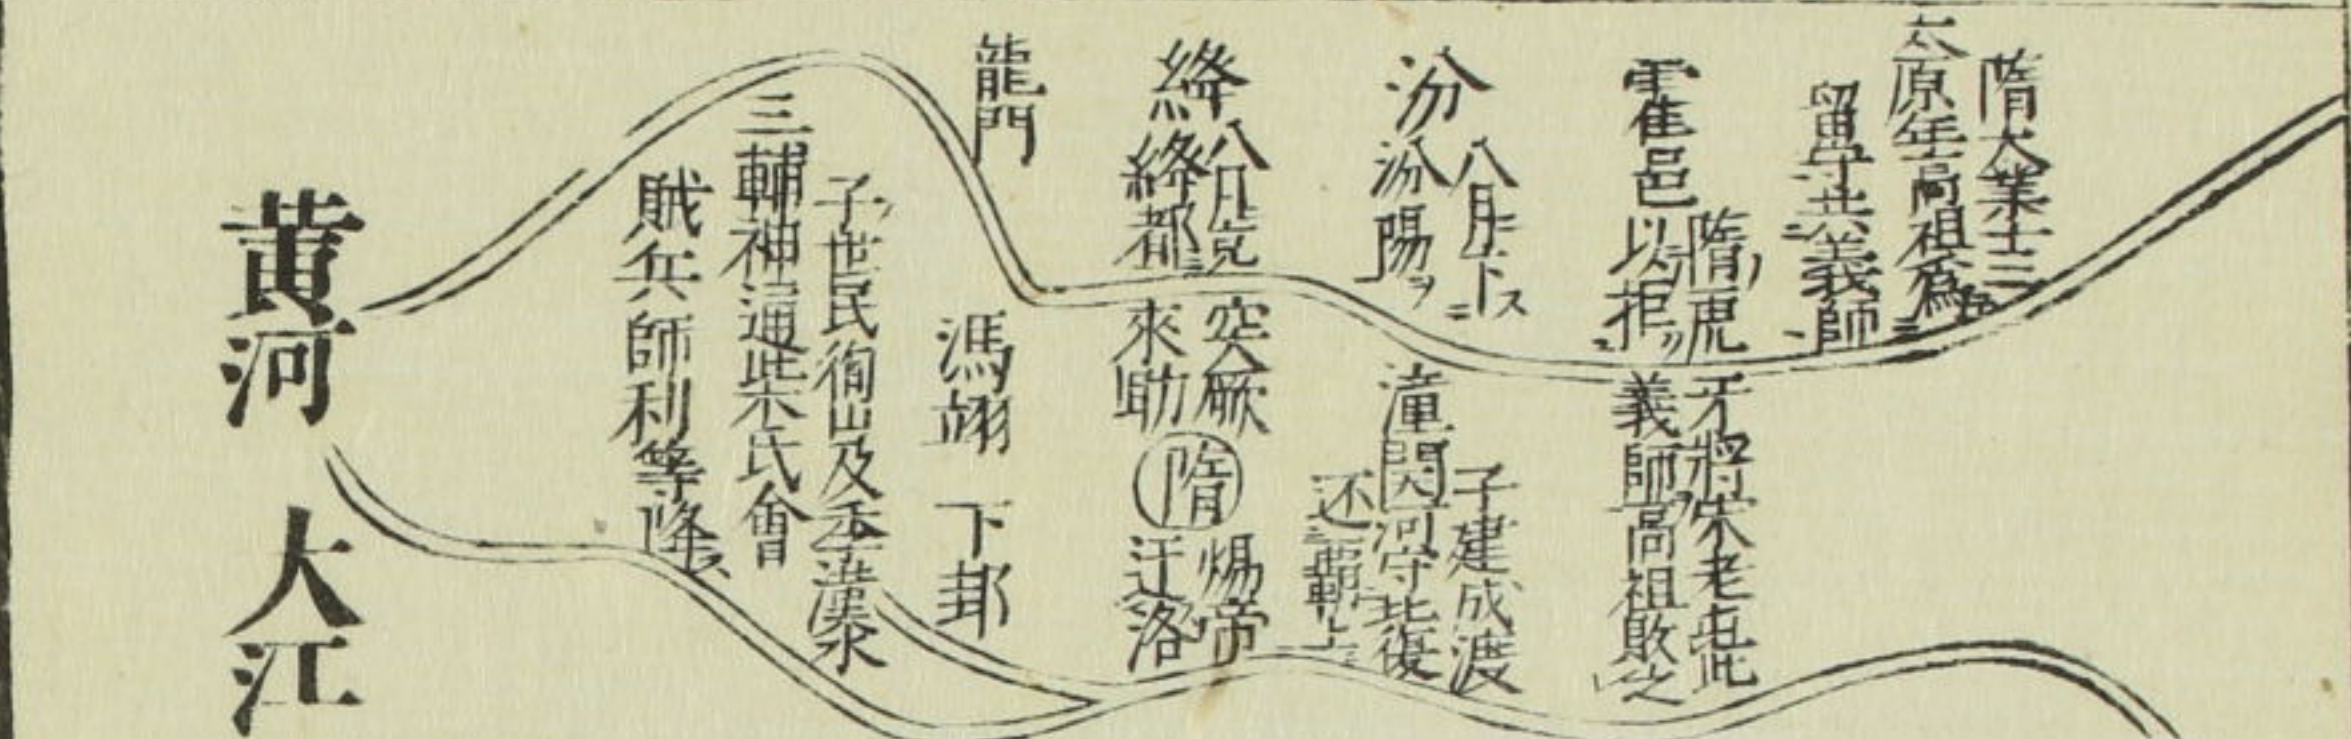 隋大業十三
太原年高祖為
留守共義師
霍邑
隋虎牙將宋老生
以拒義師高祖敗之
汾
八月下ス
汾陽ヲ
潼関
子建成渡
河守此復
还覇上
絳
八月克
絳都
突厥
來助
隋
煬帝
迁洛
龍門
馮翊
下邽
子世民徇山及
漢水
三輔神通柴氏會
賊兵師利等降
黄河
大江